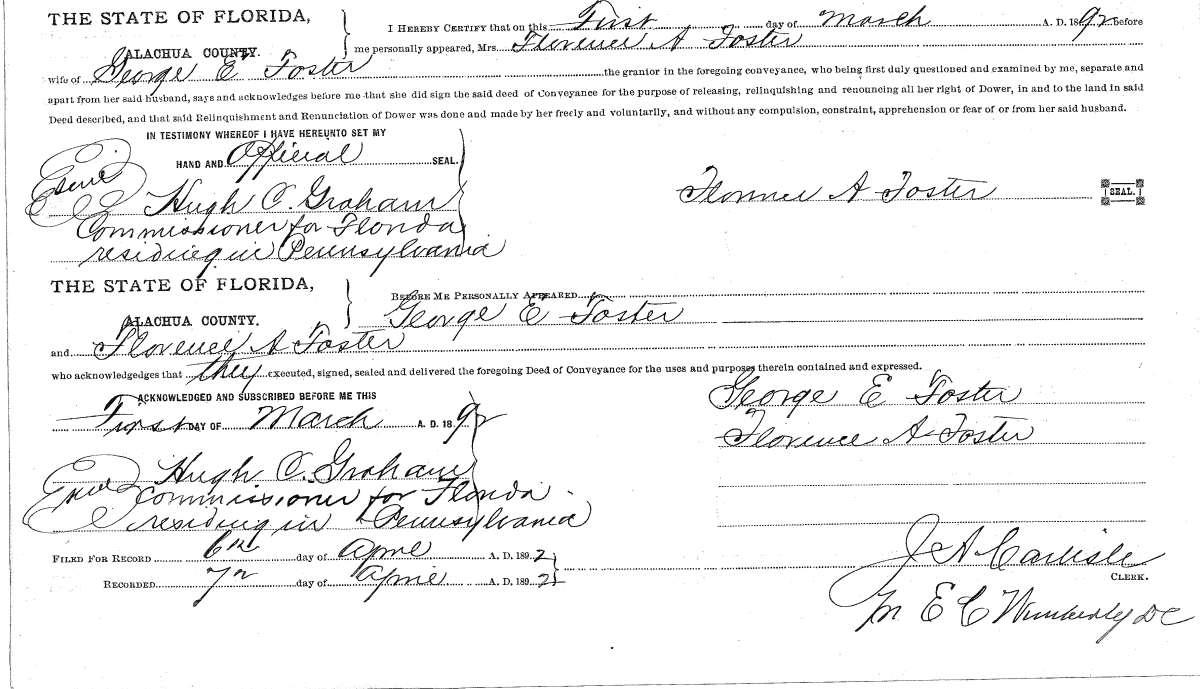 THE STATE OF FLORIDA,
ALACHUA COUNTY.
I HEREBY CERTIFY that on this First day of March A. D. 1892 before
me personally appeared, Mrs. Florence A Foster
wife of George E Foster the grantor in the foregoing conveyance, who being first duly questioned and examined by me, separate and
apart from her said husband, says and acknowledges before me that she did sign the said deed of Conveyance for the purpose of releasing, relinquishing and renouncing all her right of Dower, in and to the land in said
Deed described, and that said Relinquishment and Renunciation of Dower was done and made by her freely and voluntarily, and without any compulsion, constraint, apprehension or fear of or from her said husband.
IN TESTIMONY WHEREOF I HAVE HEREUNTO SET MY
HAND AND Official SEAL.
Hugh C. Graham
Commissioner for Florida
residing in Pennsylvania
Florence A Foster SEAL.
THE STATE OF FLORIDA,
ALACHUA COUNTY.
BEFORE ME PERSONALLY APPEARED
George E Foster
and Florence A Foster
who acknowledgedges that they executed, signed, sealed and delivered the foregoing Deed of Conveyance for the uses and purposes therein contained and expressed.
ACKNOWLEDGED AND SUBSCRIBED BEFORE ME THIS
First DAY OF March A. D. 1892
George E Foster
Florence A Foster
Hugh C. Graham
Commissioner for Florida
residing in Pennsylvania
FILED FOR RECORD 6th day of April A. D. 1892
RECORDED 7th day of April A. D. 1892
J A Carlisle
CLERK.
E C Wimberly DC